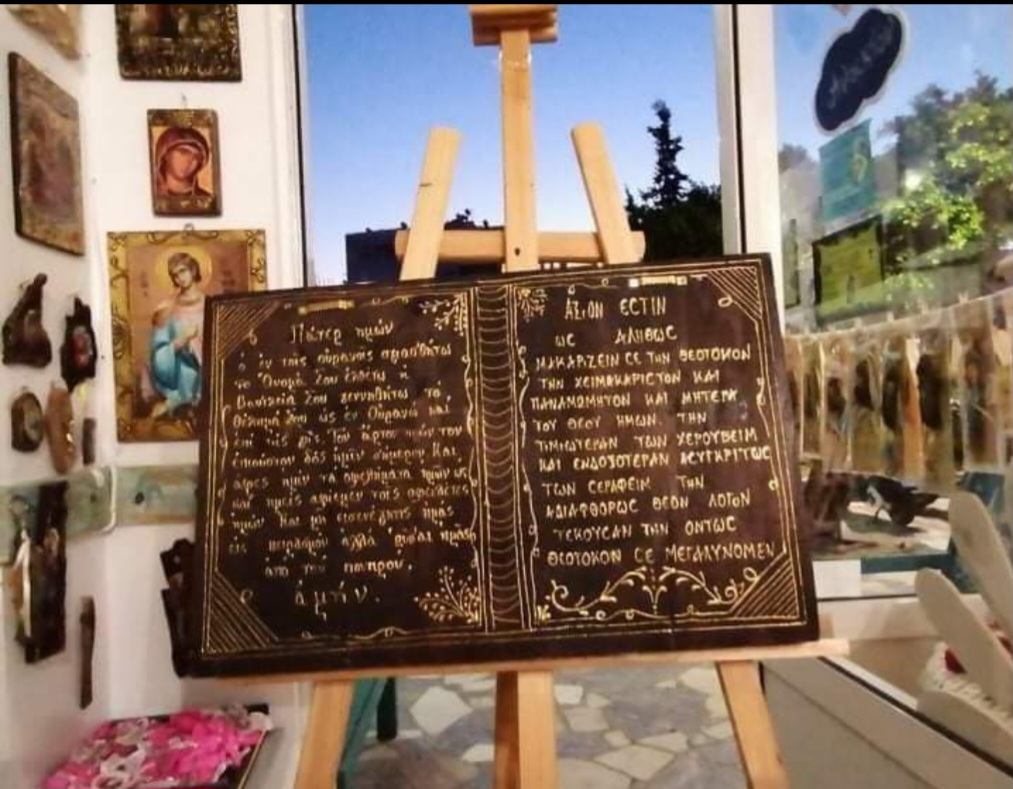 Πάτερ ημών
ὁ ἐν τοῖς οὐρανοῖς αγιασθήτω
το Όνομά Σου ελθέτω ἡ
Βασιλεία Σου γεννηθήτω τό
Θέλημά Σου ὡς ἐν Οὐρανῷ καί
ἐπί τῆς γῆς Τον Άρτον ημῶν τον
ἐπιούσιον δός ἡμῖν σήμερον Και
ἄφες ἡμῖν τά οφειλήματα ἡμῶν ως
καί ἡμεῖς αφίεμεν τοῖς οφειλέταις
ἡμῶν Και μη εισενέγκης ἡμᾶς
εἰς πειρασμόν αλλά ρύσαι ημᾶς
απο του πονηρού.
ἀμήν.
ΑΞΙΟΝ ΕСΤΙΝ
ωС ΑΛΗΘωС
ΜΑΚΑΡΙΖΕΙΝ СΕ ΤΗΝ ΘΕΟΤΟΚΟΝ
ΤΗΝ ΑΕΙΜΑΚΑΡΙСΤΟΝ ΚΑΙ
ΠΑΝΑΜωΜΗΤΟΝ ΚΑΙ ΜΗΤΕΡΑ
ΤΟΥ ΘΕΟΥ ΗΜωΝ. ΤΗΝ
ΤΙΜΙωΤΕΡΑΝ ΤωΝ ΧΕΡΟΥΒΕΙΜ
ΚΑΙ ΕΝΔΟΞΟΤΕΡΑΝ ΑСΥΓΚΡΙΤωС
ΤωΝ СΕΡΑΦΕΙΜ ΤΗΝ
ΑΔΙΑΦΘΟΡωС ΘΕΟΝ ΛΟΓΟΝ
ΤΕΚΟΥСΑΝ ΤΗΝ ΟΝΤωС
ΘΕΟΤΟΚΟΝ СΕ ΜΕΓΑΛΥΝΟΜΕΝ